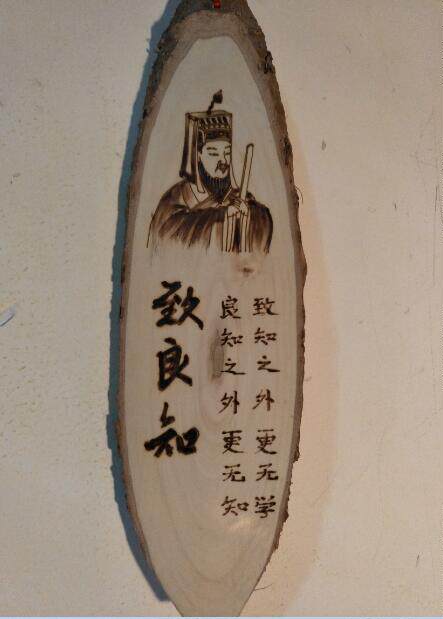 致知之外更无学
良知之外更无知
致良知